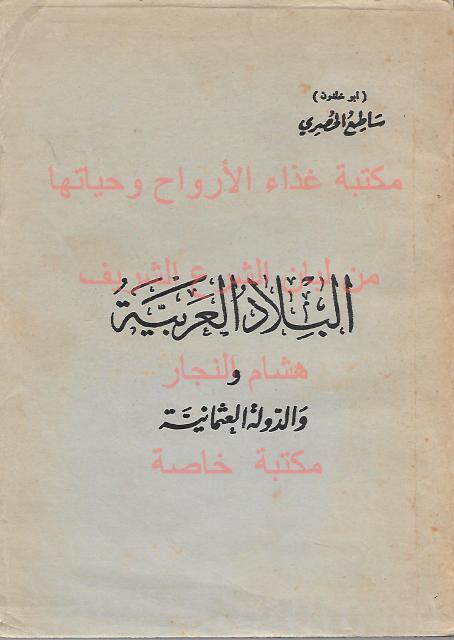 (ابو خلدون)
ساطع الحصري
مكتبة غذاء الأرواح وحياتها
من لبان الشرع الشريف
البلاد العربية
هشام النجار
و
والدولة العثمانية
مكتبة خاصة